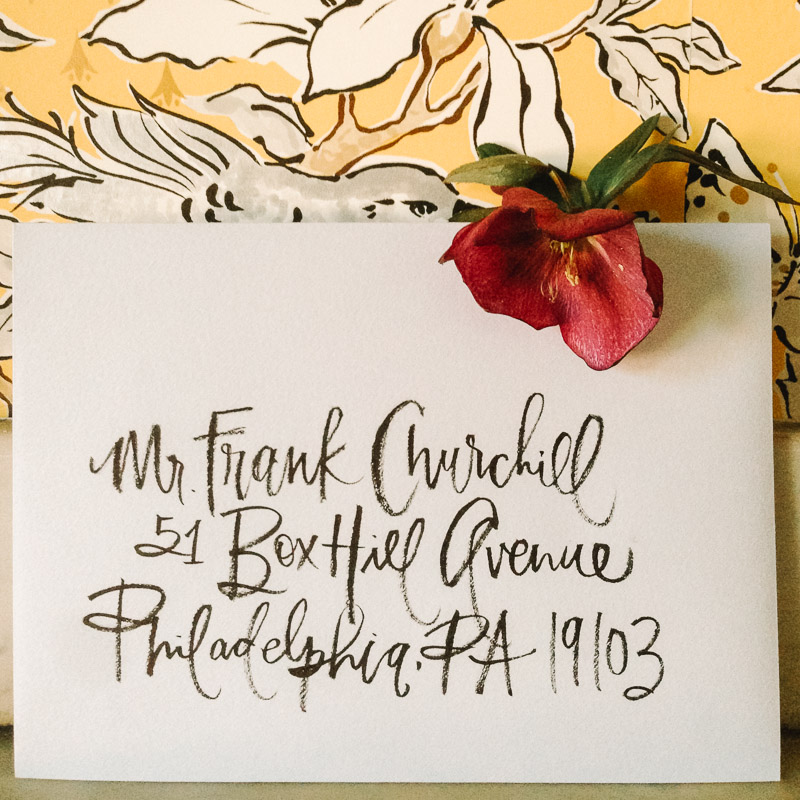 Mr. Frank Churchill
51 Box Hill Avenue
Philadelphia, PA 19103